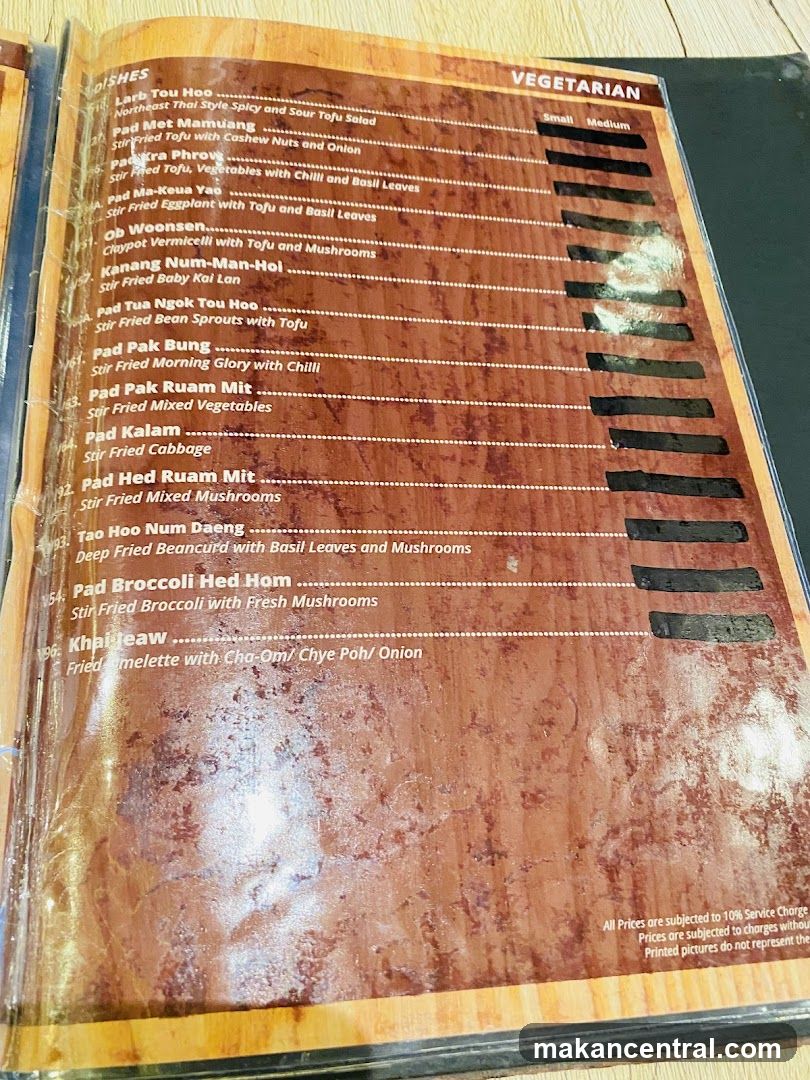 DISHES
VEGETARIAN
Small Medium
Larb Tou Hoo
Northeast Thai Style Spicy and Sour Tofu Salad
Pad Met Mamuang
Stir Fried Tofu with Cashew Nuts and Onion
Pad Kra Phrove
Stir Fried Tofu, Vegetables with Chilli and Basil Leaves
Pad Ma-Keua Yao
Stir Fried Eggplant with Tofu and Basil Leaves
Ob Woonsen
Claypot Vermicelli with Tofu and Mushrooms
Kanang Num-Man-Hoi
Stir Fried Baby Kai Lan
Pad Tua Ngok Tou Hoo
Stir Fried Bean Sprouts with Tofu
Pad Pak Bung
Stir Fried Morning Glory with Chilli
Pad Pak Ruam Mit
Stir Fried Mixed Vegetables
Pad Kalam
Stir Fried Cabbage
Pad Hed Ruam Mit
Stir Fried Mixed Mushrooms
Tao Hoo Num Daeng
Deep Fried Beancurd with Basil Leaves and Mushrooms
Pad Broccoli Hed Hom
Stir Fried Broccoli with Fresh Mushrooms
Khai Jeaw
Fried Omelette with Cha-Om/ Chye Poh/ Onion
All Prices are subjected to 10% Service Charge
Prices are subjected to charges withou
Printed pictures do not represent the
makancentral.com